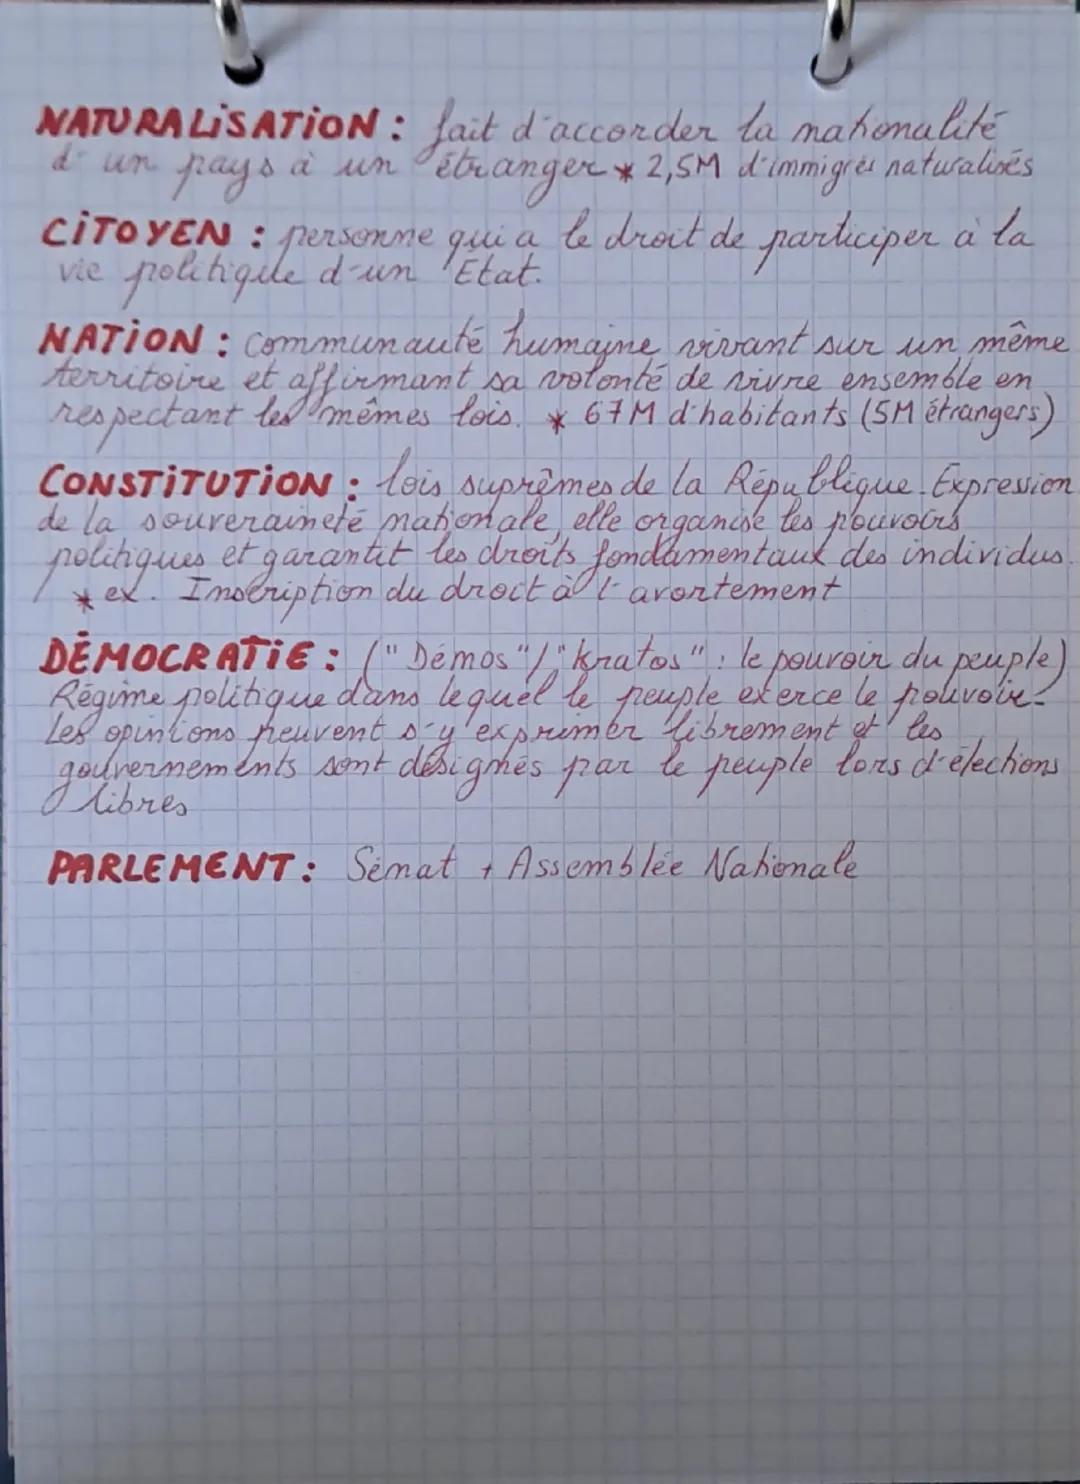 NATURALISATION : fait d'accorder la nationalité
d'un pays à un étranger * 2,5M d'immigrés naturalisés
CITOYEN : personne qui a le droit de participer à la
vie politique d'un Etat.
NATION : communauté humaine vivant sur un même
territoire et affirmant sa volonté de vivre ensemble en
respectant les mêmes lois. * 67M d'habitants (5M étrangers)
CONSTITUTION : lois suprêmes de la République. Expression
de la souveraineté nationale, elle organise les pouvoirs
politiques et garantit les droits fondamentaux des individus.
* ex. Inscription du droit à l'avortement
DÉMOCRATIE : ("Démos"/"kratos" : le pouvoir du peuple)
Régime politique dans lequel le peuple exerce le pouvoir.
Les opinions peuvent s'y exprimer librement et les
gouvernements sont désignés par le peuple lors d'élections
libres
PARLEMENT : Sénat + Assemblée Nationale